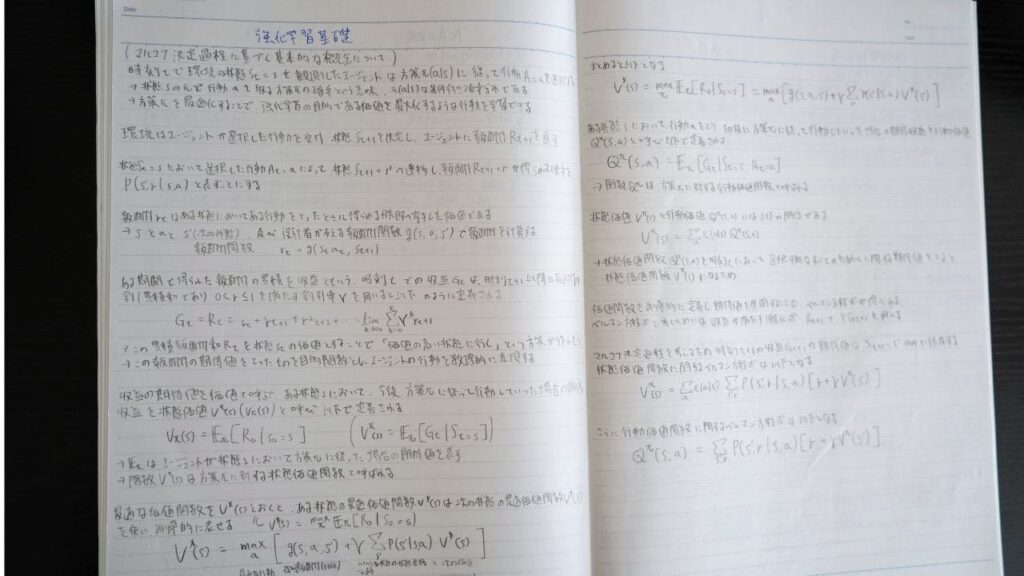 Date
強化学習基礎
(マルコフ決定過程に基づく基本的な概念について)
時刻tで環境の状態St=sを観測したエージェントは方策π(a|s)に従って行動At=aを選択する
→状態sの元で行動aを取る方策πの確率という意味、π(a|s)は条件付き確率分布である
→方策πを最適化することで、強化学習の目的である価値を最大化するような行動を学習できる
環境はエージェントが選択した行動を受け 状態St+1を決定し、エージェントに報酬Rt+1を返す
状態St=sにおいて選択した行動At=aによって 状態St+1=s'へ遷移し報酬Rt+1=rが得られる確率を
P(s',r|s,a)と表すことにする
報酬rtはある状態においてある行動をとったときに得られる
→sとaとs'(次の状態)、及び設計者が与える報酬関数g(s,a,s')で報酬を計算する
報酬関数 rt = g(st, at, st+1)
ある期間で得られた報酬の累積を収益という、時刻tでの収益Gtは、時刻t+1以降の報酬の
割引累積和であり 0≤γ≤1を満たす割引率γを用いると以下のように定義される
Gt = Rt = rt + γrt+1 + γ²rt+2 + … = lim Σ γ^k rt+k
→この累積報酬和Rtを状態Stの価値とすることで「価値の高い状態に行く」という方策が作れる
→この報酬の期待値をとったものを目的関数とし、エージェントの行動を数理的に表現する
収益の期待値を価値と呼ぶ ある状態sにおいて、以後、方策πに従って行動していった場合の期待
収益を状態価値V^π(s)(Vπ(s))と呼び 以下で定義される
Vπ(s) = Eπ[R0|S0=s] (V^π(s) = Eπ[Gt|St=s])
→Eπはエージェントが状態sにおいて方策πに従った場合の期待値を表す
→関数V^π(s)は方策πに対する状態価値関数と呼ばれる
最適な価値関数をV*(s)とおくと、ある状態の最適価値関数V*(s)は次の状態の最適価値関数V*(s')
を使い再帰的に表せる V*(s) = max Eπ[R0|S0=s]
V*(s) = max a [g(s,a,s') + γ Σ P(s'|s,a) V*(s')]
まとめると以下となる
V*(s) = max π Eπ[R0|S0=s] = max a [g(s,a,s') + γ Σ P(s'|s,a) V*(s')]
ある状態sにおいて、行動aをとり 以後に方策πに従って行動していった場合の期待収益を行動価値
Q^π(s,a)と呼び 以下で定義される
Q^π(s,a) = Eπ[Gt|St=s, At=a]
→関数Q^πは方策πに対する行動価値関数と呼ばれる
状態価値V^π(s)と行動価値Q^π(s,a)には以下の関係がある
V^π(s) = Σ π(a|s) Q^π(s,a)
→行動価値関数Q^π(s,a)を時刻tにおいて選択可能な
状態価値関数V^π(s)となるため
価値関数を再帰的に定義し期待値を使用することで、ベルマン方程式が得られる
ベルマン方程式 Rt+1 + γGt+1を用いる
マルコフ決定過程を考えるため 時刻t+1での収益Gt+1の期待値は St+1=s'のみに依存する
状態価値関数に関するベルマン方程式は以下となる
V^π(s) = Σ π(a|s) Σ P(s',r|s,a)[r + γV^π(s')]
さらに行動価値関数に関するベルマン方程式は以下となる
Q^π(s,a) = Σ P(s',r|s,a)[r + γV^π(s')]